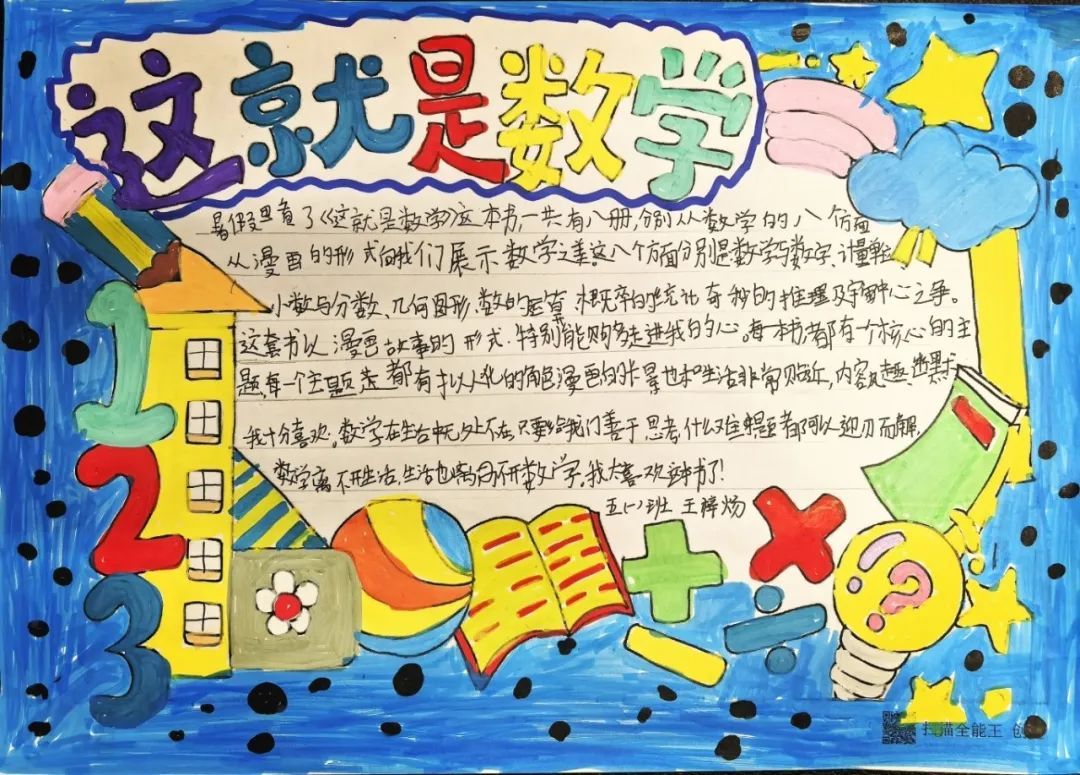 这就是数学
暑假里看了《这就是数学》这本书,一共有八册,分别从数学的八个方面
从漫画的形式向我们展示数学之美。这八个方面分别是数学与数字、计量单位
小数与分数、几何图形、数的运算、概率的统计、奇妙的推理及宇宙中心之争。
这套书以漫画故事的形式.特别能够走进我的心。每本书都有一个核心的主
题,每一个主题都有拟人化的角色漫画的背景也和生活非常贴近,内容风趣幽默
我十分喜欢。数学在生活中无处不在,只要我们善于思考,什么难题都可以迎刃而解.
数学离不开生活,生活也离不开数学,我太喜欢这本书了!
五(一)班 王 炀
1
2
3
+
×
÷
?
扫描全能王 创